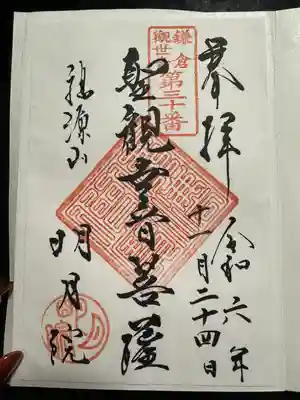 奉拝
令和六年
十一月二十四日
鎌倉
観世音
第三十番
聖観世音菩薩
福源山
明月院